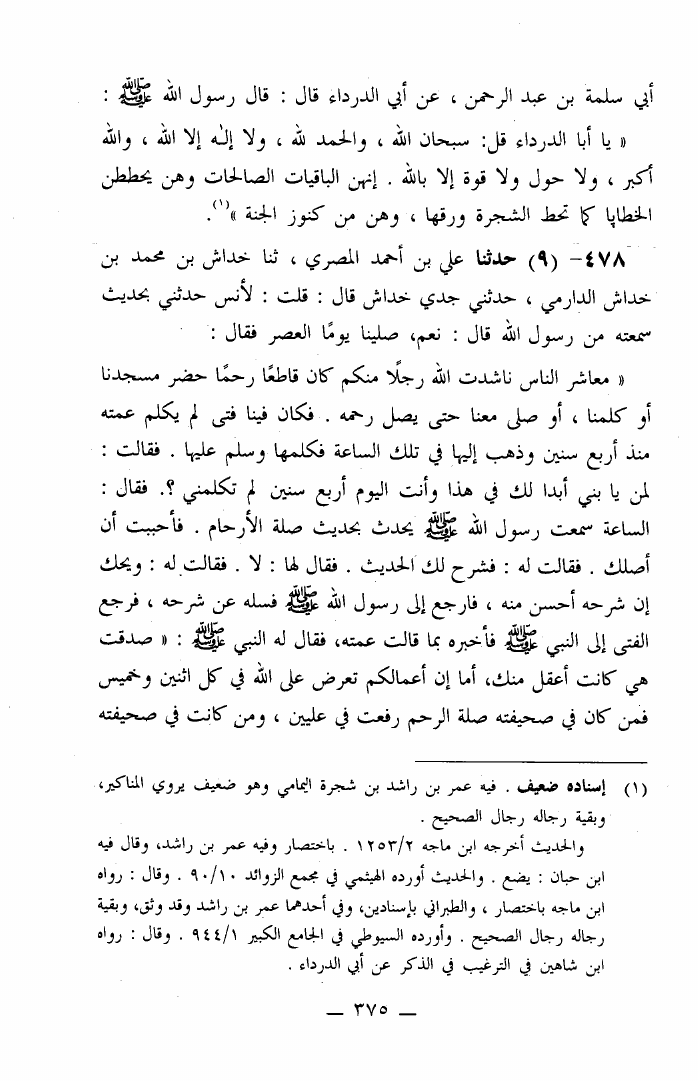 أبي سلمة بن عبد الرحمن ، عن أبي الدرداء قال : قال رسول الله ﷺ :
« يا أبا الدرداء قل: سبحان الله ، والحمد لله ، ولا إله إلا الله ، والله
أكبر ، ولا حول ولا قوة إلا بالله . إنهن الباقيات الصالحات وهن يحططن
الخطايا كما تحط الشجرة ورقها ، وهن من كنوز الجنة »(١).
٤٧٨- (٩) حدثنا علي بن أحمد المصري ، ثنا خداش بن محمد بن
خداش الدارمي ، حدثني جدي خداش قال : قلت : لأنس حدثني بحديث
سمعته من رسول الله قال : نعم، صلينا يومًا العصر فقال :
« معاشر الناس ناشدت الله رجلًا منكم كان قاطعًا رحمًا حضر مسجدنا
أو كلمنا ، أو صلى معنا حتى يصل رحمه . فكان فينا فتى لم يكلم عمته
منذ أربع سنين وذهب إليها في تلك الساعة فكلمها وسلم عليها . فقالت :
لمن يا بني أبدا لك في هذا وأنت اليوم أربع سنين لم تكلمني ؟. فقال :
الساعة سمعت رسول الله ﷺ يحدث بحديث صلة الأرحام . فأحببت أن
أصلك . فقالت له : فشرح لك الحديث . فقال لها : لا . فقالت له : ويحك
إن شرحه أحسن منه ، فارجع إلى رسول الله ﷺ فسله عن شرحه ، فرجع
الفتى إلى النبي ﷺ فأخبره بما قالت عمته، فقال له النبي ﷺ : « صدقت
هي كانت أعقل منك، أما إن أعمالكم تعرض على الله في كل اثنين وخميس
فمن كان في صحيفته صلة الرحم رفعت في عليين ، ومن كانت في صحيفته
(١) إسناده ضعيف . فيه عمر بن راشد بن شجرة اليمامي وهو ضعيف يروي المناكير،
وبقية رجاله رجال الصحيح .
والحديث أخرجه ابن ماجه ١٢٥٣/٢ . باختصار وفيه عمر بن راشد، وقال فيه
ابن حبان : يضع . والحديث أورده الهيثمي في مجمع الزوائد ٩٠/١٠ . وقال : رواه
ابن ماجه باختصار ، والطبراني بإسنادين، وفي أحدهما عمر بن راشد وقد وثق، وبقية
رجاله رجال الصحيح . وأورده السيوطي في الجامع الكبير ٩٤٤/١ . وقال : رواه
ابن شاهين في الترغيب في الذكر عن أبي الدرداء .
— ٣٧٥ —